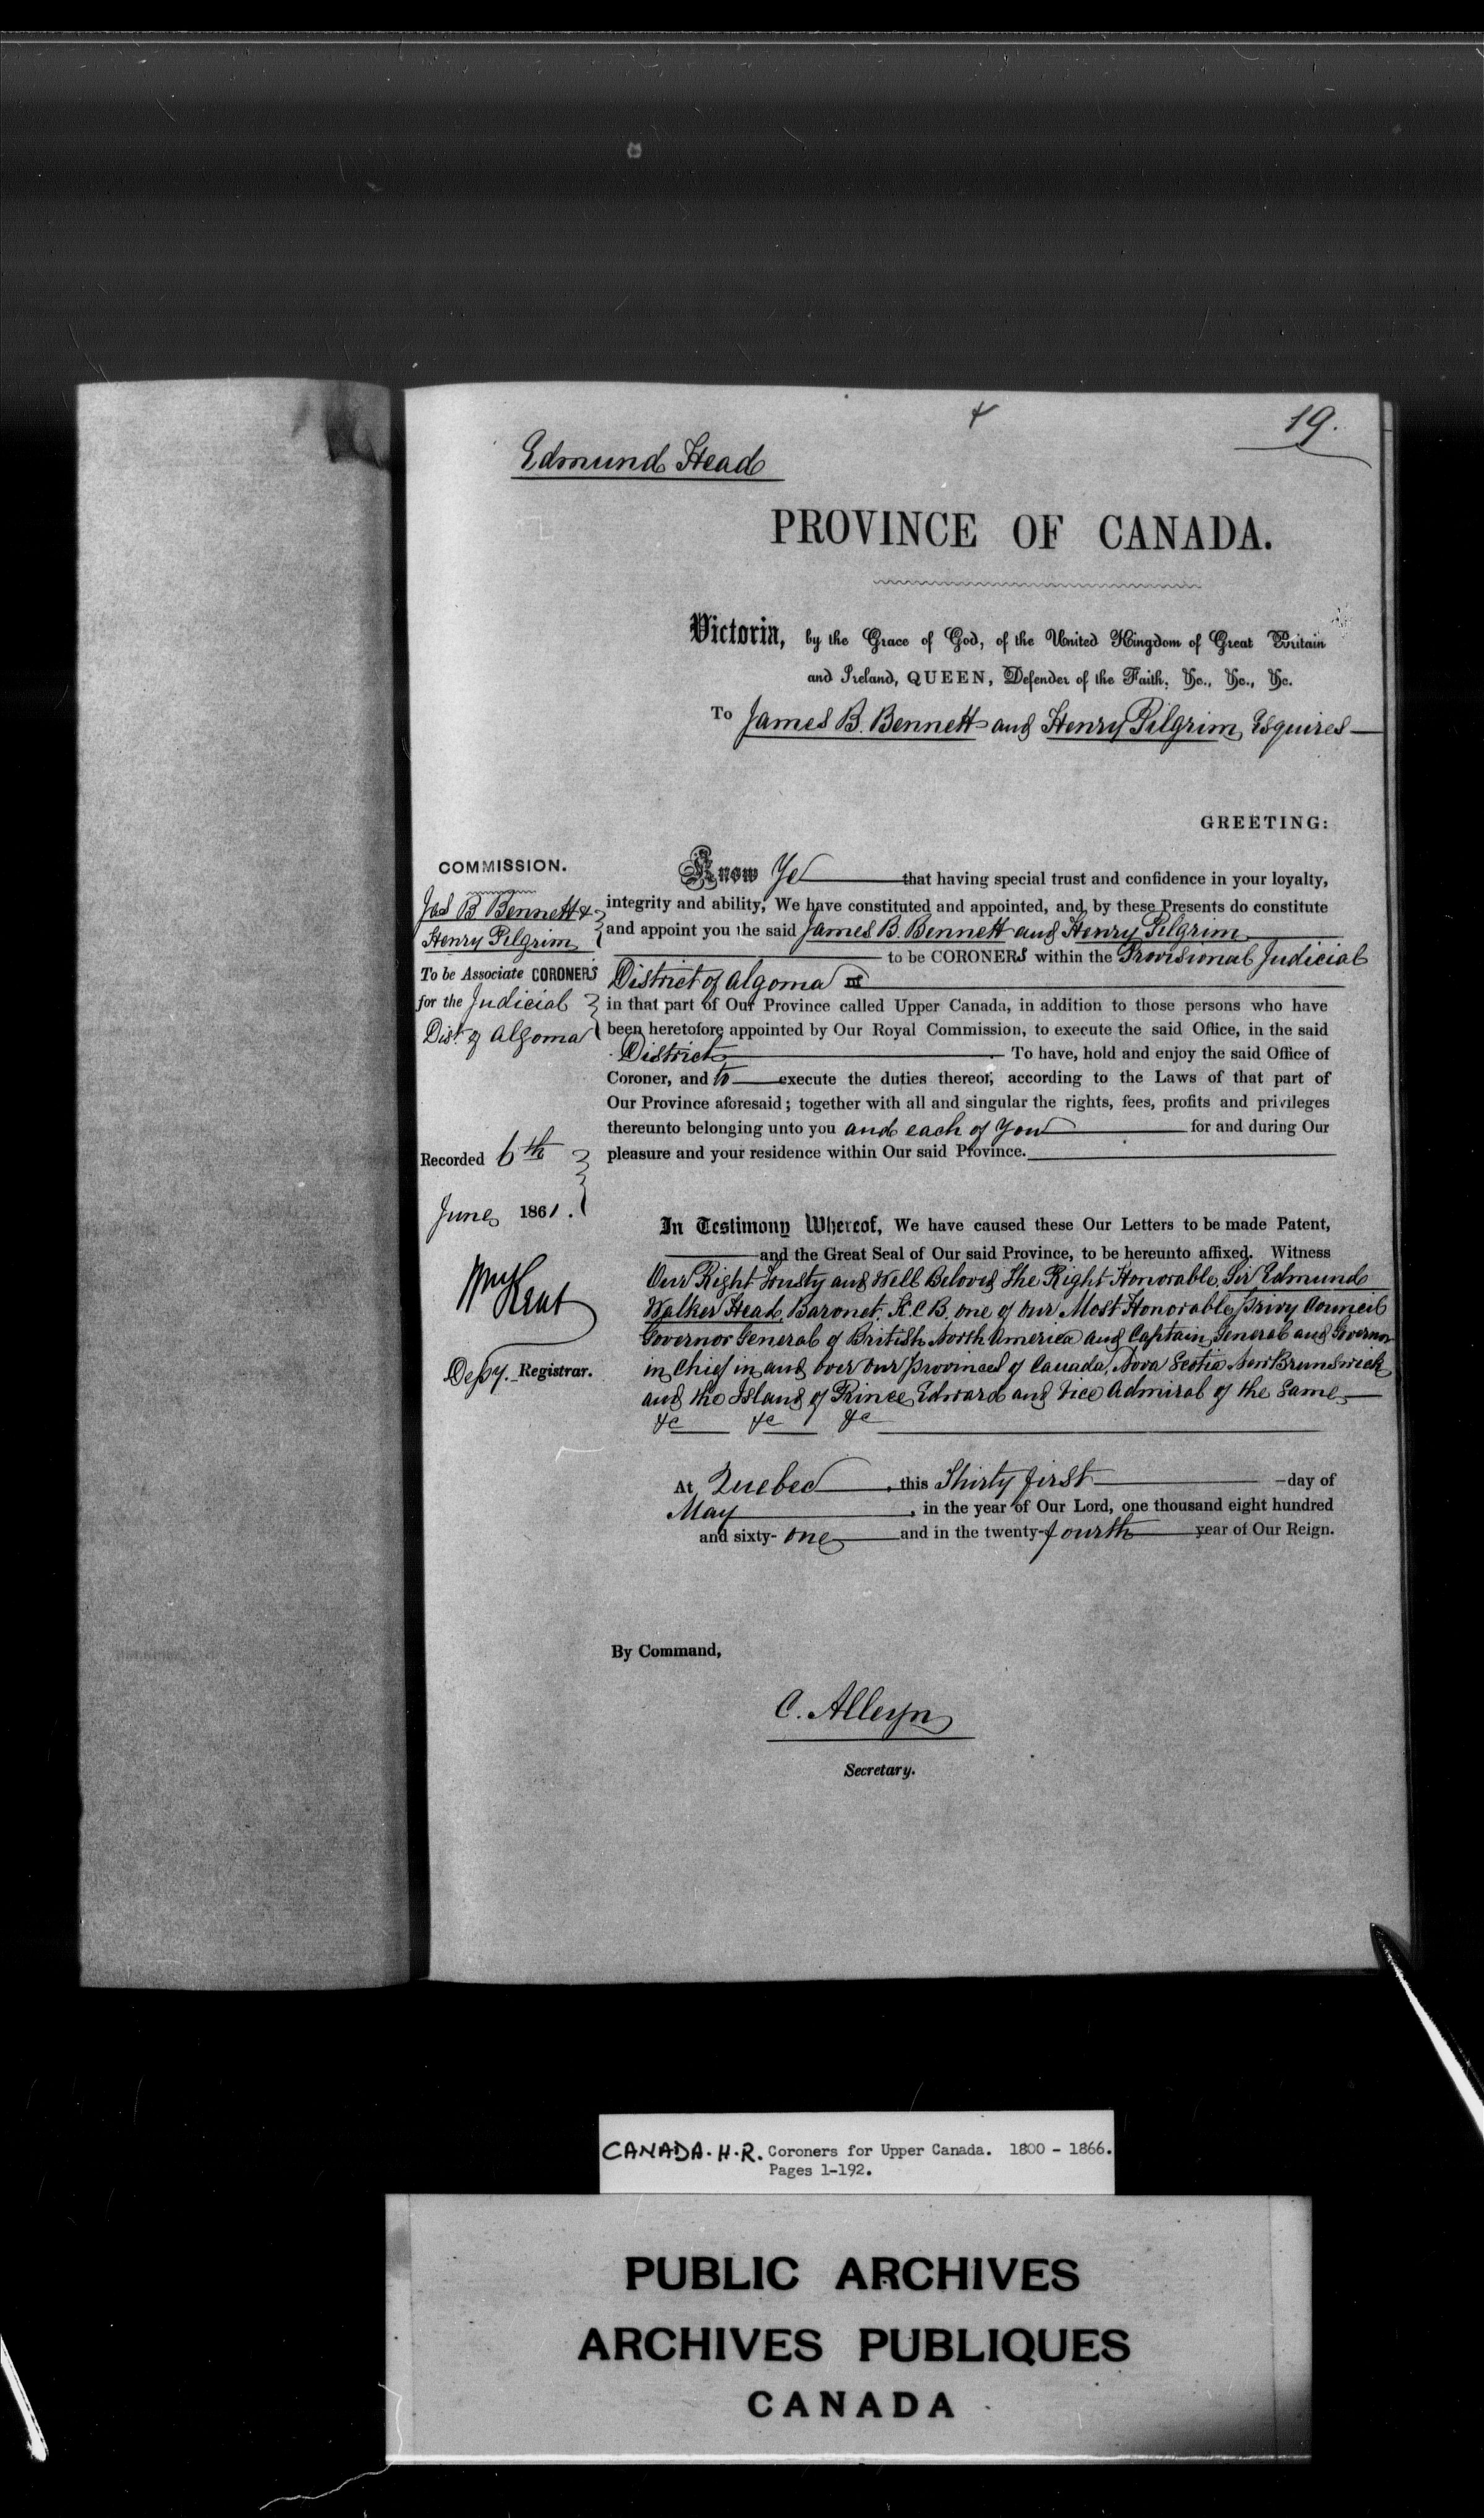 19.
Edmund Head
PROVINCE OF CANADA.
Victoria, by the Grace of God, of the United Kingdom of Great Britain
and Ireland, QUEEN, Defender of the Faith, &c., &c., &c.
To James B. Bennett and Henry Pilgrim, Esquires
GREETING:
COMMISSION.
Jas B Bennett &
Henry Pilgrim
To be Associate CORONERS
for the Judicial
Dist. of Algoma
Recorded 6th
June 1861.
Wm Kent
Depy. Registrar.
Know Ye that having special trust and confidence in your loyalty,
integrity and ability, We have constituted and appointed, and by these Presents do constitute
and appoint you the said James B. Bennett and Henry Pilgrim
to be CORONERS within the Provisional Judicial
District of Algoma
in that part of Our Province called Upper Canada, in addition to those persons who have
been heretofore appointed by Our Royal Commission, to execute the said Office, in the said
District. To have, hold and enjoy the said Office of
Coroner, and to execute the duties thereof, according to the Laws of that part of
Our Province aforesaid; together with all and singular the rights, fees, profits and privileges
thereunto belonging unto you and each of You for and during Our
pleasure and your residence within Our said Province.
In Testimony Whereof, We have caused these Our Letters to be made Patent,
and the Great Seal of Our said Province, to be hereunto affixed. Witness
Our Right Trusty and Well Beloved The Right Honorable Sir Edmund
Walker Head, Baronet, K.C.B. one of Our Most Honorable Privy Council
Governor General of British North America and Captain General and Governor
in Chief in and over Our Provinces of Canada, Nova Scotia New Brunswick
and the Island of Prince Edward and Vice Admiral of the Same
&c &c &c
At Quebec, this Thirty first day of
May, in the year of Our Lord, one thousand eight hundred
and sixty-one and in the twenty-fourth year of Our Reign.
By Command,
C. Alleyn
Secretary.
CANADA. H.R. Coroners for Upper Canada. 1800 - 1866.
Pages 1-192.
PUBLIC ARCHIVES
ARCHIVES PUBLIQUES
CANADA